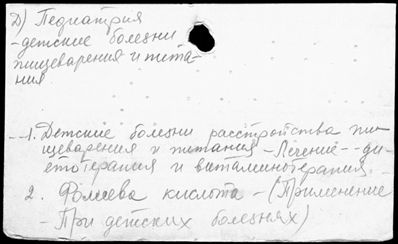 Д) Педиатрия
-детские болезни
пищеварения и пита-
ния
1. Детские болезни расстройства пи-
щеварения и питания - Лечение -- ди-
етотерапия и витаминотерапия
2. Фолиева кислота - (Применение
- При детских болезнях)